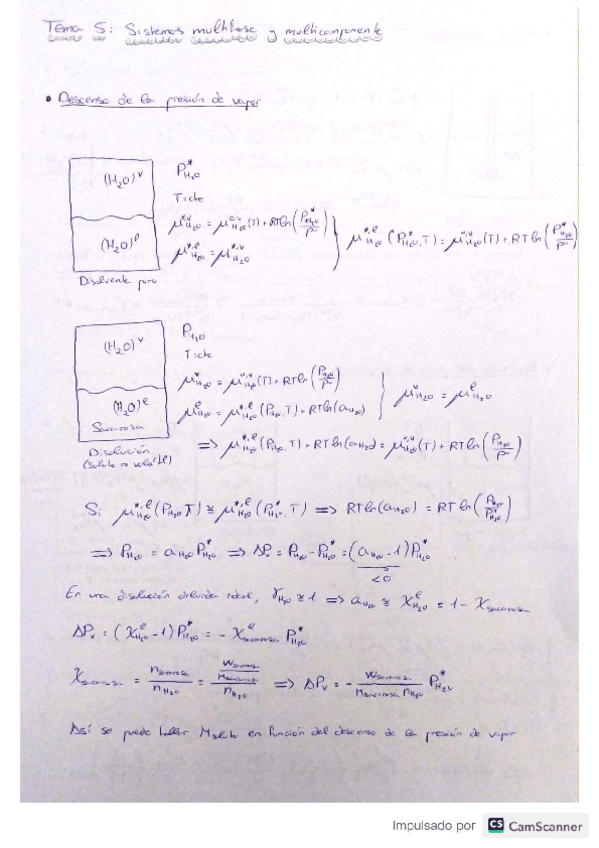 Tema 5: Sistemas multifase y multicomponente
• Descenso de la presión de vapor
(H₂O)ᵛ
(H₂O)ˡ
Disolvente puro
P*_H₂O
T=cte
μ*,ᵛ_H₂O = μ°,ᵛ_H₂O(T) + RT ln(P*_H₂O/P°)
μ*,ˡ_H₂O = μ*,ᵛ_H₂O
μ*,ˡ_H₂O (P*_H₂O, T) = μ°,ᵛ_H₂O(T) + RT ln(P*_H₂O/P°)
(H₂O)ᵛ
(H₂O)ˡ
Sacarosa
Disolución
(soluto no volátil)
P_H₂O
T=cte
μᵛ_H₂O = μ°,ᵛ_H₂O(T) + RT ln(P_H₂O/P°)
μˡ_H₂O = μ*,ˡ_H₂O (P_H₂O, T) + RT ln(a_H₂O)
μᵛ_H₂O = μˡ_H₂O
⇒ μ*,ˡ_H₂O (P_H₂O, T) + RT ln(a_H₂O) = μ°,ᵛ_H₂O(T) + RT ln(P_H₂O/P°)
Si μ*,ˡ_H₂O (P_H₂O, T) ≅ μ*,ˡ_H₂O (P*_H₂O, T) ⇒ RT ln(a_H₂O) = RT ln(P_H₂O/P*_H₂O)
⇒ P_H₂O = a_H₂O P*_H₂O ⇒ ΔPᵥ = P_H₂O - P*_H₂O = (a_H₂O - 1) P*_H₂O
<0
En una disolución diluida ideal, γ_H₂O ≅ 1 ⇒ a_H₂O ≅ Xˡ_H₂O = 1 - X_sacarosa
ΔPᵥ = (Xˡ_H₂O - 1) P*_H₂O = - Xˡ_sacarosa P*_H₂O
X_sacarosa = n_sacarosa/n_H₂O = (W_sacarosa/M_sacarosa)/n_H₂O ⇒ ΔPᵥ = - W_sacarosa/(M_sacarosa n_H₂O) P*_H₂O
Así se puede hallar M_soluto en función del descenso de la presión de vapor
Impulsado por CS CamScanner